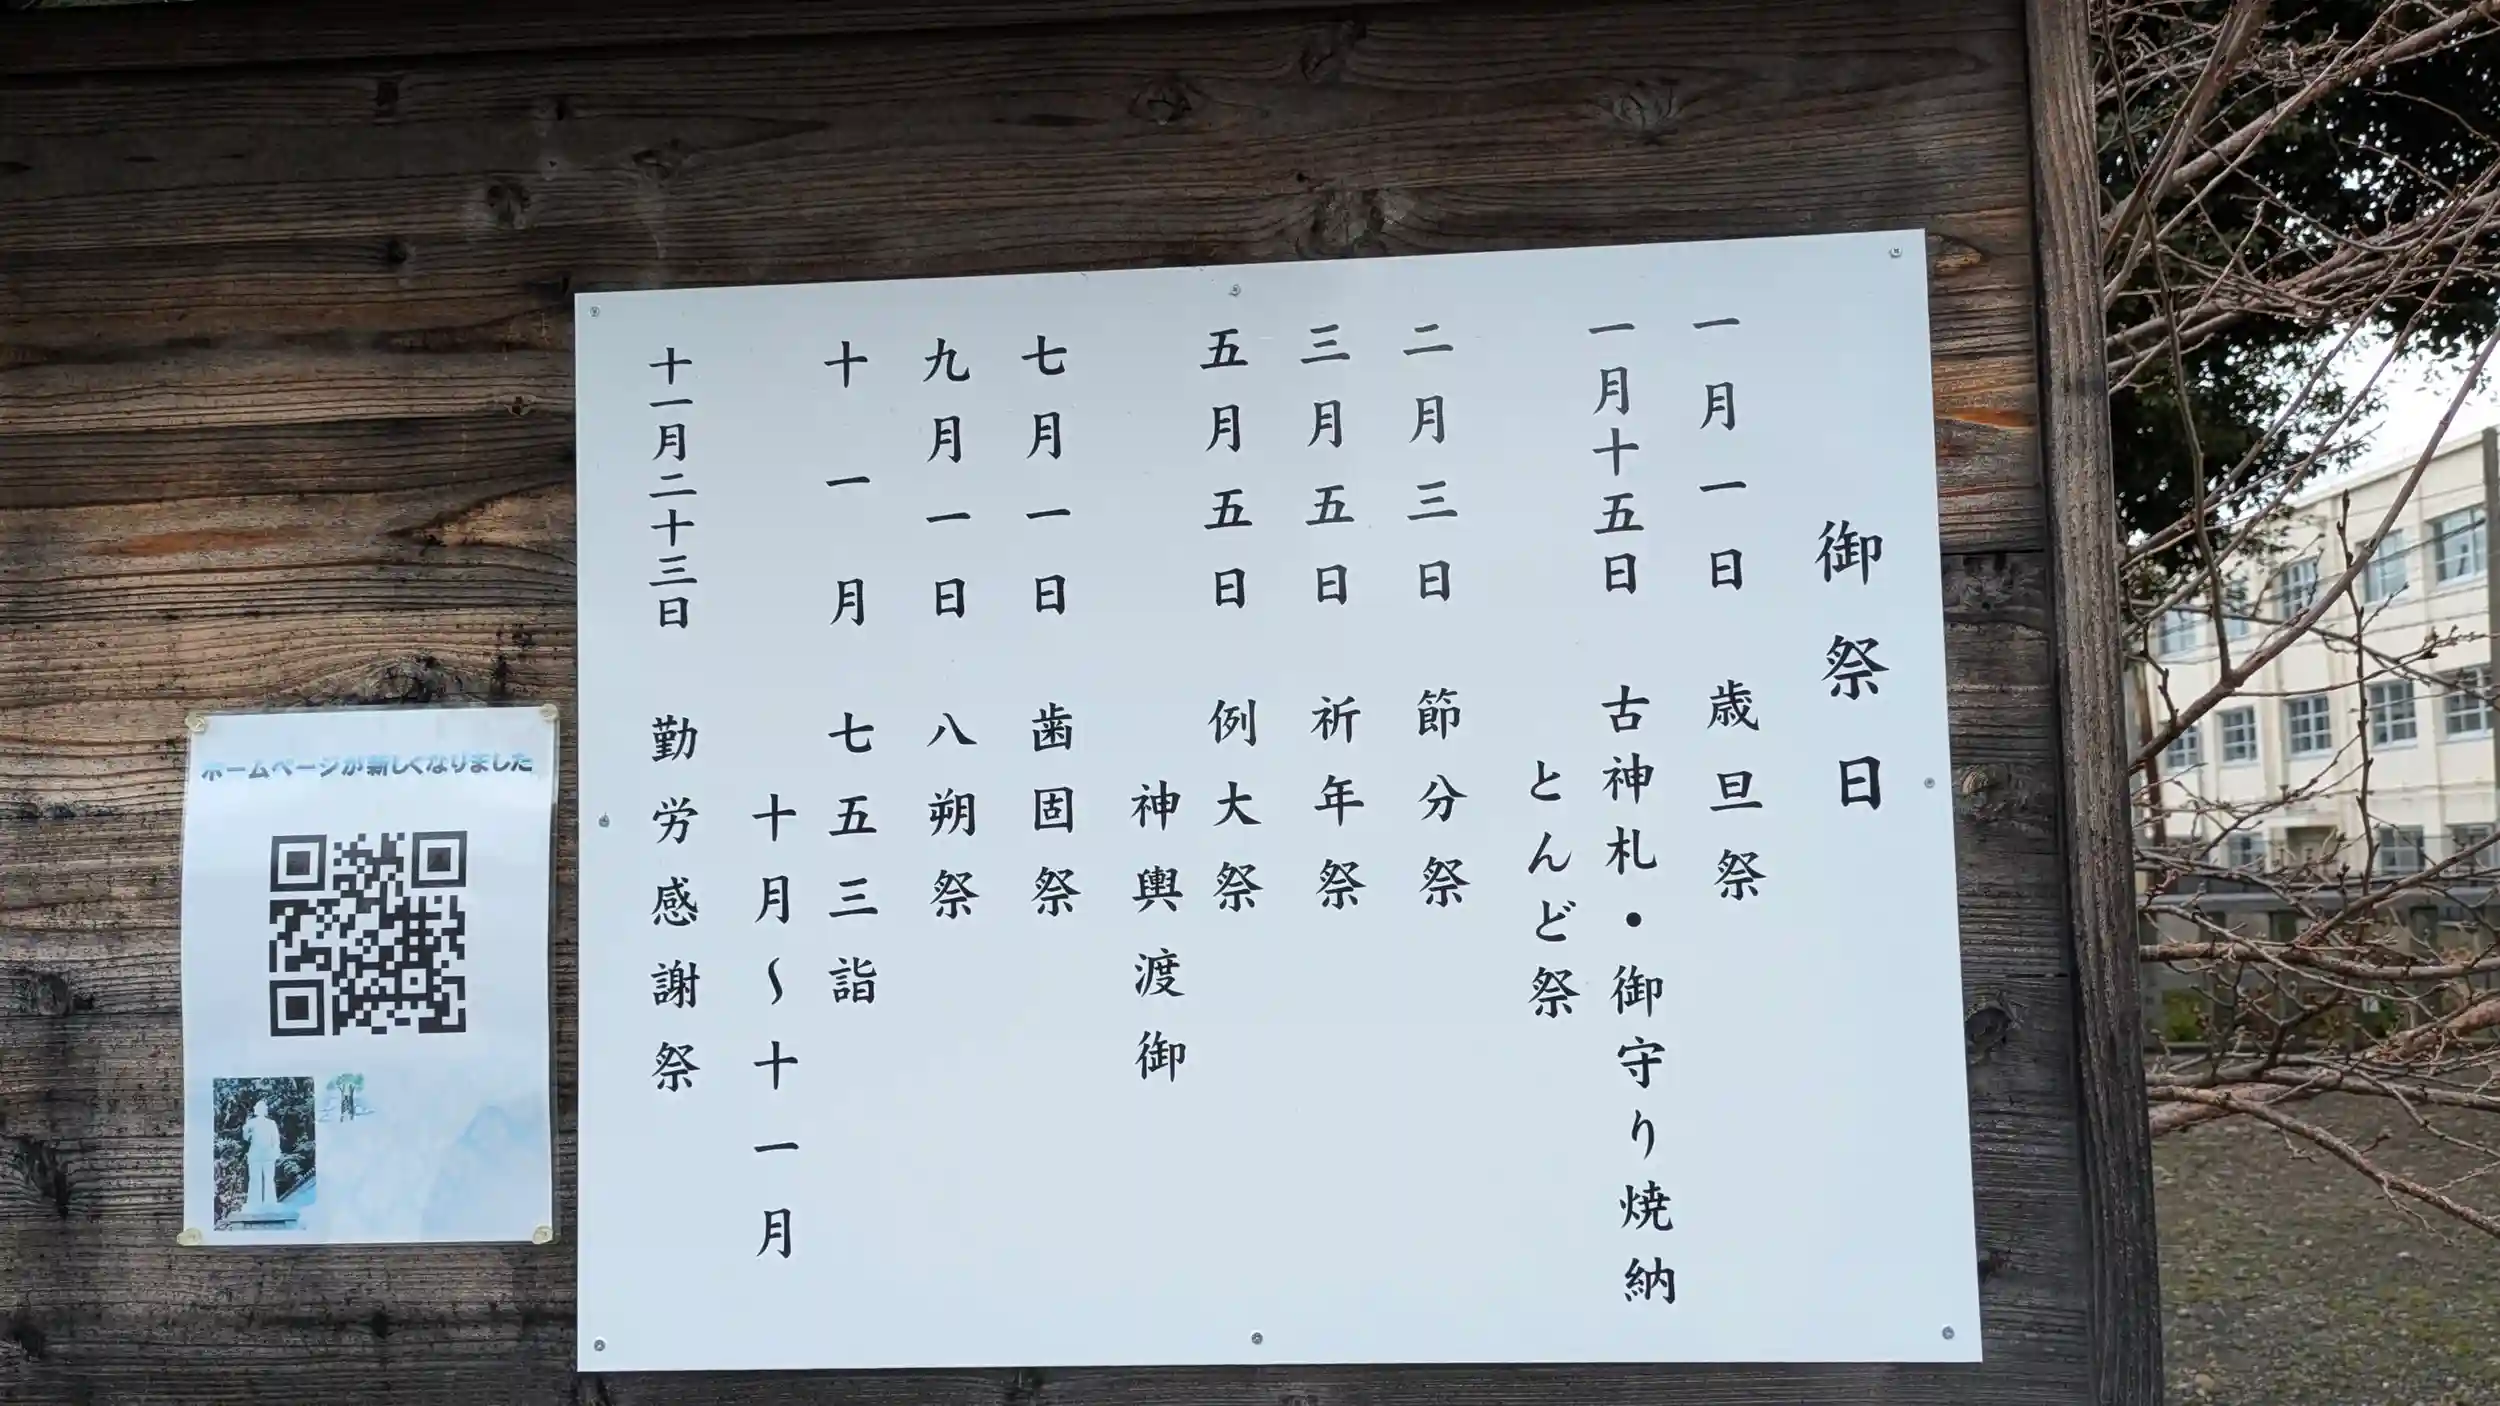 御祭日
一月一日 歳旦祭
一月十五日 古神札・御守り焼納
とんど祭
二月三日 節分祭
三月五日 祈年祭
五月五日 例大祭
神輿渡御
七月一日 歯固祭
九月一日 八朔祭
十一月 七五三詣
十月〜十一月
十一月二十三日 勤労感謝祭
ホームページが新しくなりました